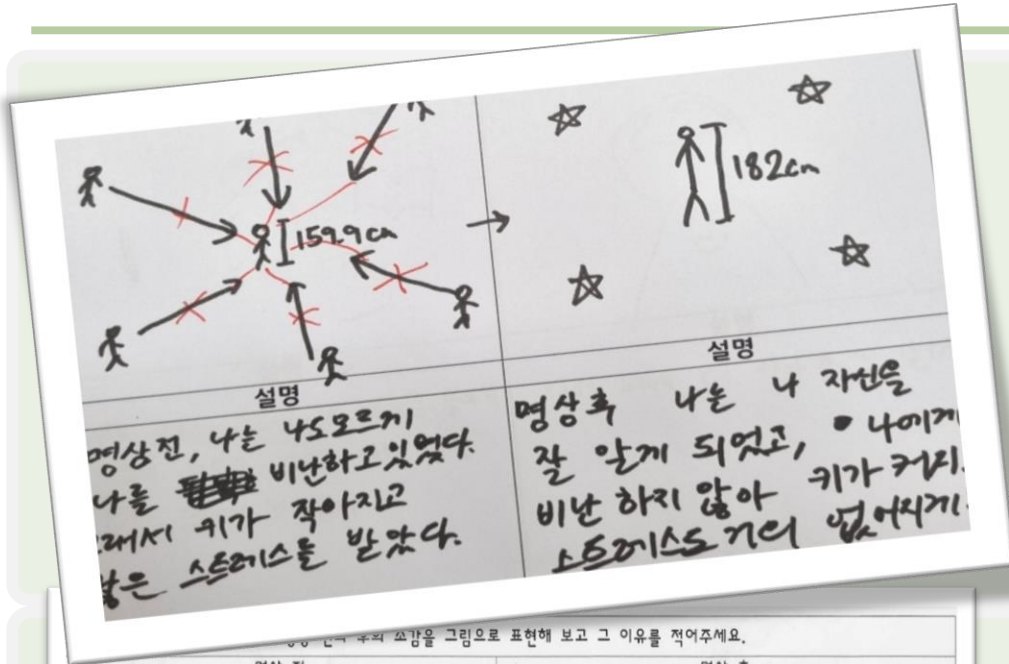 159.9cm
182cm
설명
명상전, 나는 나도모르게
나를 비난하고있었다.
래서 키가 작아지고
많은 스트레스를 받았다.
설명
명상후 나는 나 자신을
잘 알게 되었고, 나에게
비난 하지 않아 키가 커지
스트레스도 거의 없어지게
소감을 그림으로 표현해 보고 그 이유를 적어주세요.